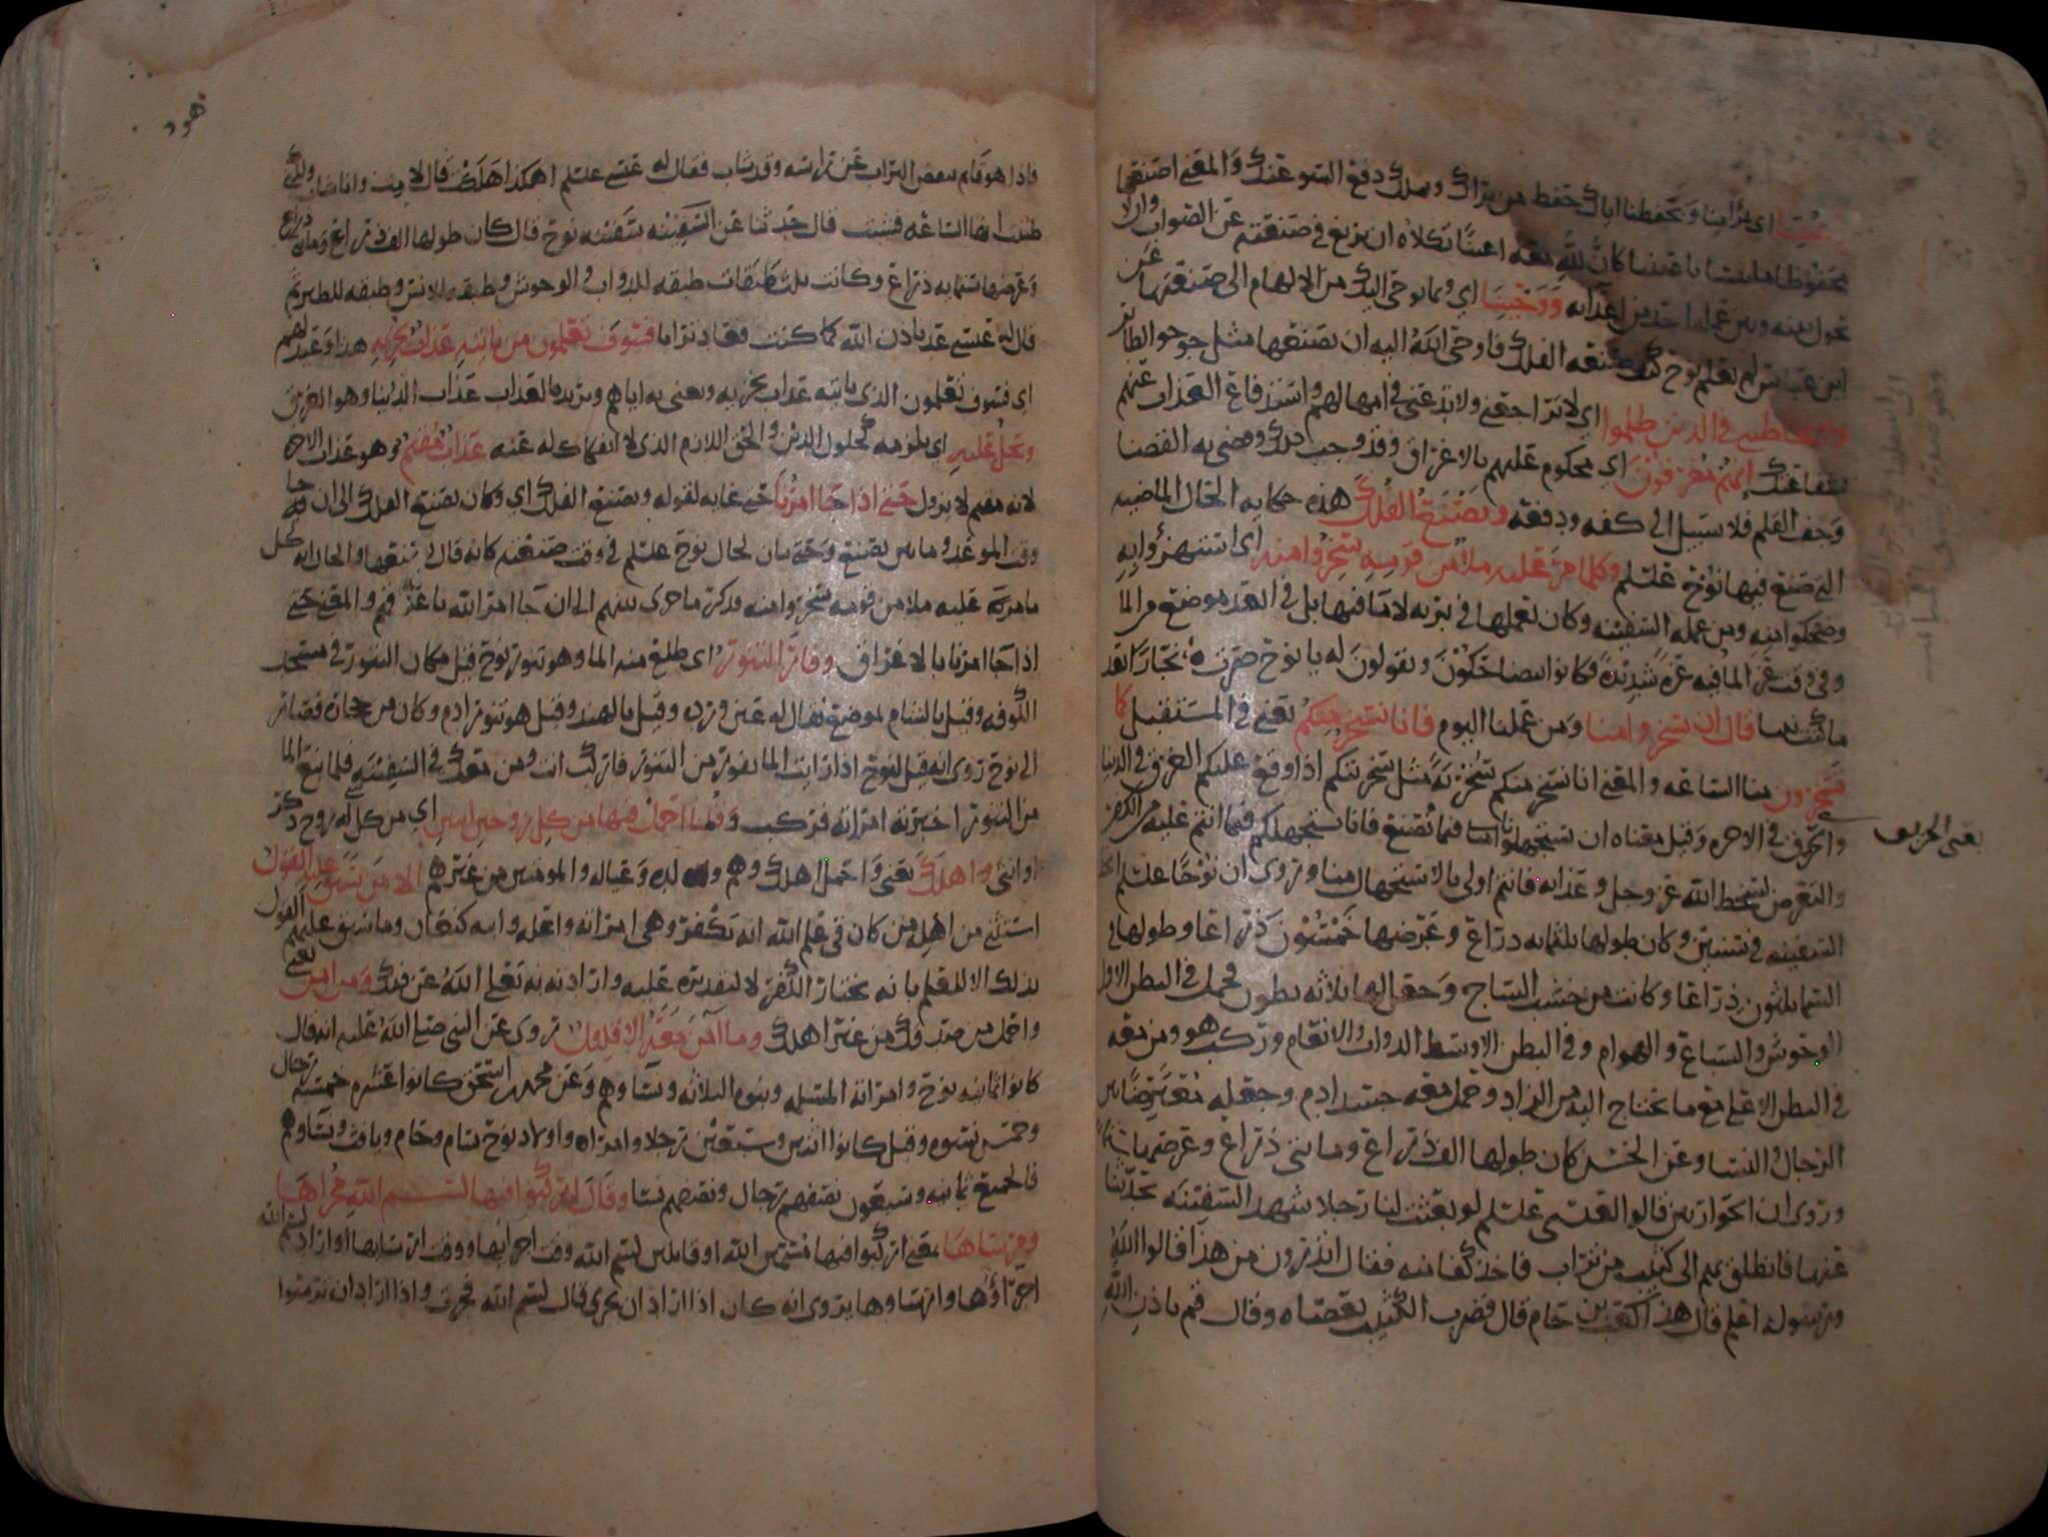 اي بمرآمنا وتحفظنا اياك حفظ من يراك ويملك دفع السوء عنك والمعنى اصنعها
محفوظا باعيننا كان لله معه اعينا تكلاه ان يزيغ في صنعته عن الصواب وان لا
يحول بينه وبين عمله احد من اعدآئه ووحينا اي وبما نوحي اليك من الالهام الى صنعتها عن
ابن عباس لم يعلم نوح كيف صنعه الفلك فاوحى الله اليه ان يصنعها مثل جوجو الطائر
ولا تخاطبني في الذين ظلموا اي لا تراجعني ولا تدعني في امهالهم واستدفاع العذاب عنهم
بشفاعتك انهم مغرقون اي محكوم عليهم بالاغراق وقد وجب ذلك وقضي به القضا
وجف القلم فلا سبيل الى كفه ودفعه ويصنع الفلك هذه حكايه الحال الماضيه
التي صنع فيها نوح علسلم وكلما مر عليه ملا من قومه سخروا منه اي استهزؤا به
وضحكوا منه ومن عمله السفينه وكان يعملها في بريه لا ما فيها بل في ابعد موضع من الما
وفي وقت عز الما فيه عزه شديده فكانوا يتضاحكون ويقولون له يا نوح صرت نجارا بعد
ما كنت نبيا قال ان تسخروا منا ومن عملنا اليوم فانا نسخر منكم يعني في المستقبل كما
تسخرون منا الساعه والمعنى انا نسخر منكم سخريه مثل سخريتكم اذا وقع عليكم الغرق في الدنيا
والحرق في الاخره وقيل معناه ان تستجهلونا فيما نصنع فانا نستجهلكم فيما انتم عليه من الكفر
يعني الحريق
والتعرض لسخط الله عز وجل وعذابه فانتم اولى بالاستجهال منا وروي ان نوحا علسلم اتخذ
السفينه في سنتين وكان طولها ثلثمايه ذراع وعرضها خمسون ذراعا وطولها في
السما ثلثون ذراعا وكانت من خشب الساج وجعل لها ثلاثه بطون فحمل في البطن الاول
الوحوش والسباع والهوام وفي البطن الاوسط الدواب والانعام وركب هو ومن معه
في البطن الاعلى مع ما يحتاج اليه من الزاد وحمل معه جسد ادم وجعله معترضا بين
الرجال والنسا وعن الحسن كان طولها الف ذراع ومايتي ذراع وعرضها ستمايه
وروي ان الحواريين قالوا لعيسى علسلم لو بعثت لنا رجلا شهد السفينه يحدثنا
عنها فانطلق بهم الى كثيب من تراب فاخذ كفا منه فقال اتدرون من هذا قالوا الله
ورسوله اعلم قال هذا كعب بن حام قال فضرب الكثيب بعصاه وقال قم باذن الله
هود
فاذا هو قايم ينفض التراب عن راسه وقد شاب فقال له عيسى علسلم اهكذا هلكت قال لا مت وانا شاب ولكني
ظننت انها الساعه فشبت قال حدثنا عن السفينه سفينه نوح قال كان طولها الف ذراع ومايتي ذراع
وعرضها ستمايه ذراع وكانت ثلث طبقات طبقه للدواب والوحوش وطبقه للانس وطبقه للطير ثم
قال له عيسى عد باذن الله كما كنت فعاد ترابا فسوف تعلمون من ياتيه عذاب يخزيه هذا وعيد لهم
اي فسوف تعلمون الذي ياتيه عذاب يخزيه ويعني به اياهم ويريد بالعذاب عذاب الدنيا وهو الغرق
ويحل عليه اي يلزمه حلول الدين والحق اللازم الذي لا انفكاك له عنه عذاب مقيم وهو عذاب الاخره
لانه مقيم لا يزول حتى اذا جا امرنا حتى غايه لقوله ويصنع الفلك اي وكان يصنع الفلك الى ان جا
وقت الموعد وما بين يصنع وحتى بيان لحال نوح علسلم في وقت صنعته كانه قال يصنعها والحال انه كل
ما مر عليه ملا من قومه سخروا منه وذكر ما جرى بينهم الى ان جا امر الله باغراقهم والمعنى حتى
اذا جا امرنا بالاغراق وفار التنور اي طلع منه الما وهو تنور نوح قيل مكان التنور في مسجد
الكوفه وقيل بالشام لموضع يقال له عين ورده وقيل بالهند وقيل هو تنور ادم وكان من حجاره فصار
الى نوح روي انه قيل لنوح اذا رايت الما يفور من التنور فاركب انت ومن معك في السفينه فلما نبع الما
من التنور اخبرته امراته فركب وقلنا احمل فيها من كل زوجين اثنين اي من كل له زوج ذكر
او انثى واهلك يعني واحمل اهلك وهم ولده وعياله والمومنين من غيرهم الا من سبق عليه القول
استثنى من اهله من كان في علم الله انه يكفر وهي امراته واعله وابنه كنعان وما سبق عليهم القول
بذلك الا للعلم بانه يختار الكفر لا لتقديره عليه وارادته به تعلى الله عن ذلك ومن امن يعني
واحمل من صدقك من غير اهلك وما آمن معه الا قليل روي عن النبي صلى الله عليه انه قال
كانوا ثمانيه نوح وامراته المسلمه وبنوه الثلاثه ونساوهم وعن محمد بن اسحق كانوا عشره خمسه رجال
وخمس نسوه وقيل كانوا اثنين وسبعين رجلا وامراه واولاد نوح سام وحام ويافث ونساوهم
فالجميع ثمانيه وسبعون نصفهم رجال ونصفهم نسا وقال اركبوا فيها بسم الله مجراها
ومرساها يعني اركبوا فيها مسمين الله او قايلين بسم الله وقت اجرائها ووقت ارسائها او اراد بسم الله
اجراؤها وارساوها يروى انه كان اذا اراد ان تجري قال بسم الله فجرت واذا اراد ان ترسوا